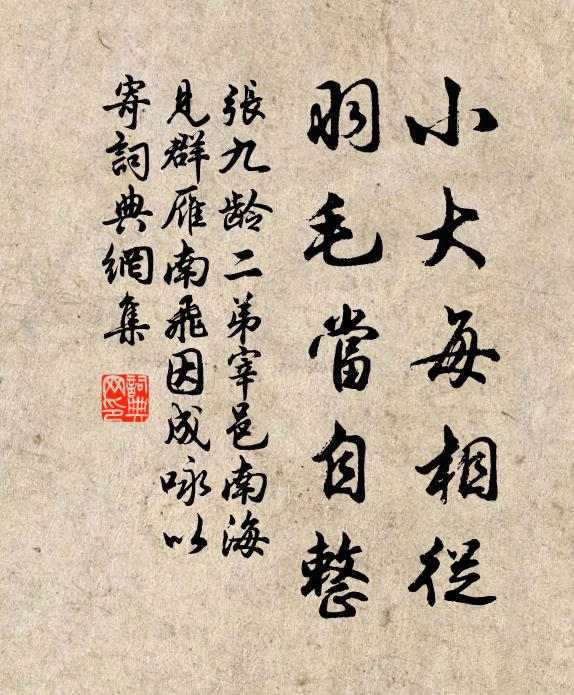 小大每相從
羽毛當自整
張九龄二弟宰邑南海
見群雁南飛因成咏以
寄詞典網集
詞典
网印